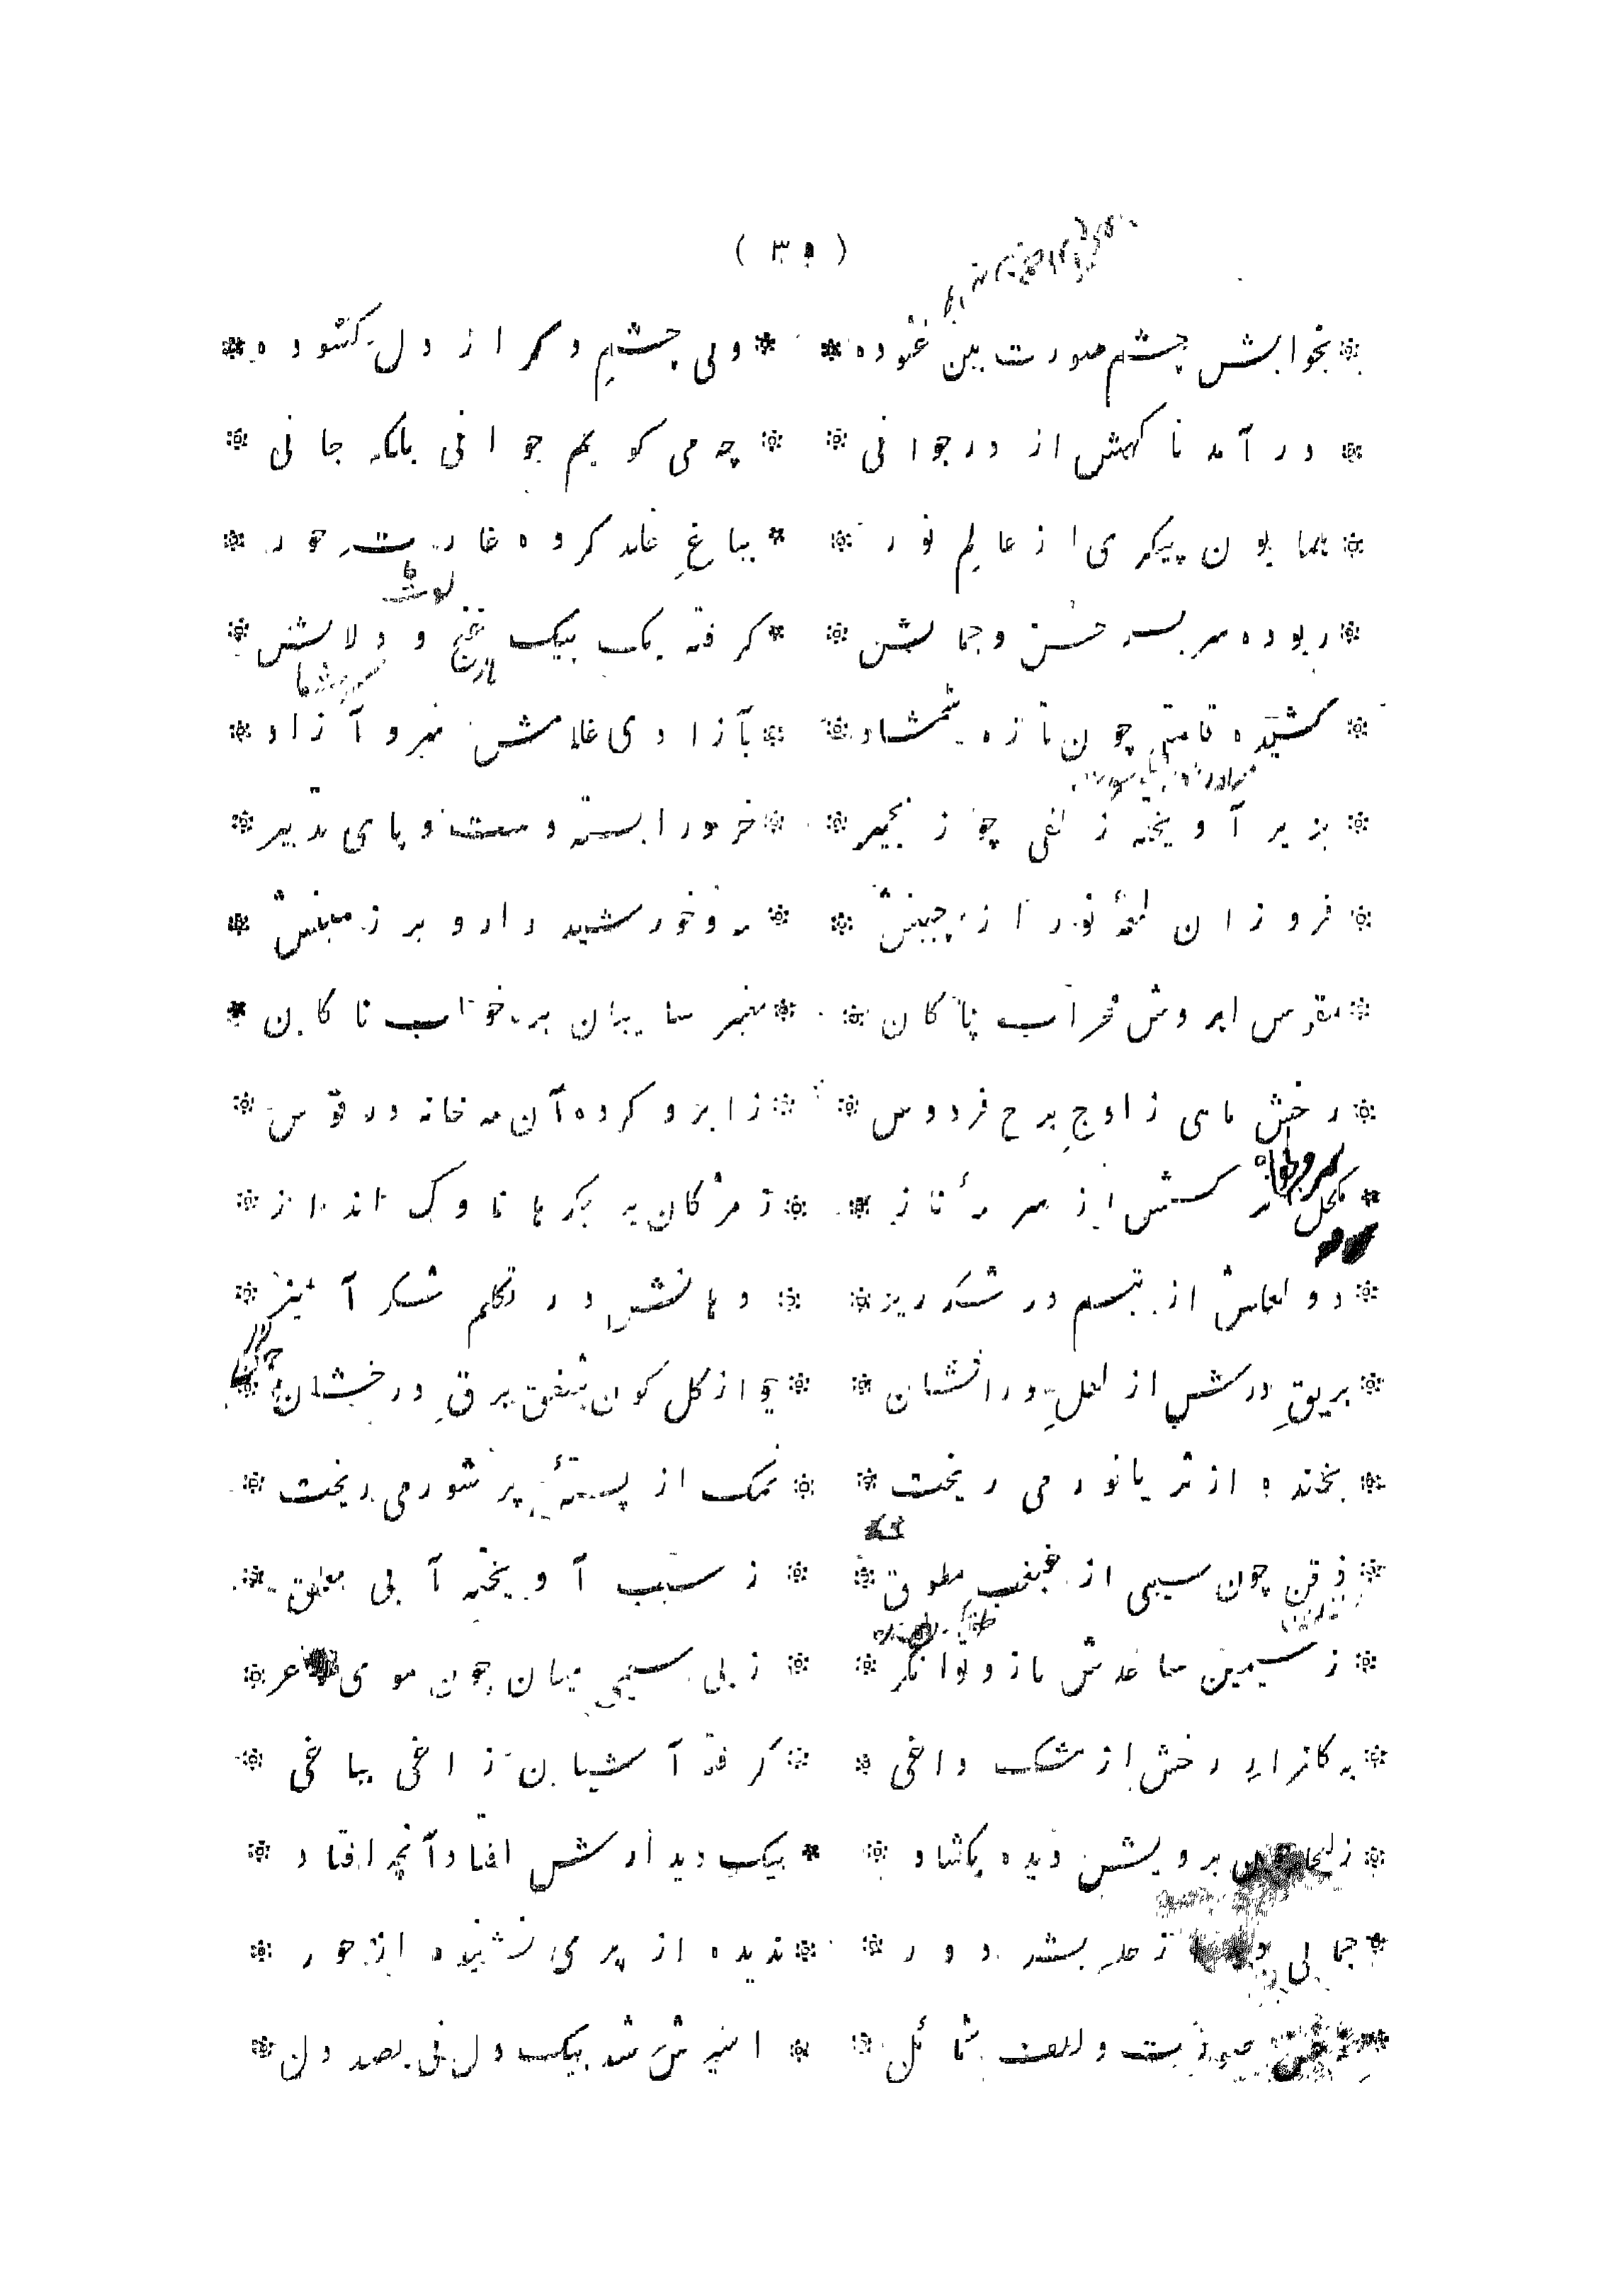 ( ۳۹ )
* بخوابش چشم صورت بین غنوده * * ولی چشم دگر از دل کشوده *
* درآمد ناگهش از در جوانی * * چه می گویم جوانی بلکه جانی *
* همایون پیکری از عالم نور * * بباغ خلد کرده غارت حور *
* ربوده سر بسر حسن و جمالش * * گرفته یک بیک غنج و دلالش *
* کشیده قامتی چون تازه شمشاد * * بآزادی غلامش سرو آزاد *
* بزیر آویخته زلفی چو زنجیر * * خرد را بسته دست و پای تدبیر *
* فروزان لمعهٔ نور از جبینش * * مه و خورشید را رو بر زمینش *
* مقوس ابروش محراب پاکان * * معنبر سایبان بر خواب ناکان *
* رخش ماهی ز اوج برج فردوس * * ز ابرو کرده آن مه خانه در قوس *
* مکحل نرگسش از سرمهٔ ناز * * ز مژگان بر جگرها ناوک انداز *
* دو لعلش از تبسم در شکر ریز * * دهانش در تکلم شکر آمیز *
* بریق درش از لعل در افشان * * چو از گلگون شفق برق درخشان *
* بخنده از ثریا نور می ریخت * * نمک از پستهٔ پر شور می ریخت *
* ذقن چون سیبی از غبغب مطوق * * ز سیب آویخته آبی معلق *
* ز سیمین ساعدش بازو توانگر * * ز بی سیمی میان چون موی لاغر *
* به گلزار رخش از مشک داغی * * گرفته آشیان زاغی بباغی *
* زلیخا چون برویش دیده بگشاد * * بیک دیدارش افتاد آنچه افتاد *
* جمالی دید از حد بشر دور * * ندیده از پری نشنیده از حور *
* ز حسن صورت و لطف شمائل * * اسیرش شد بیک دل نی بصد دل *